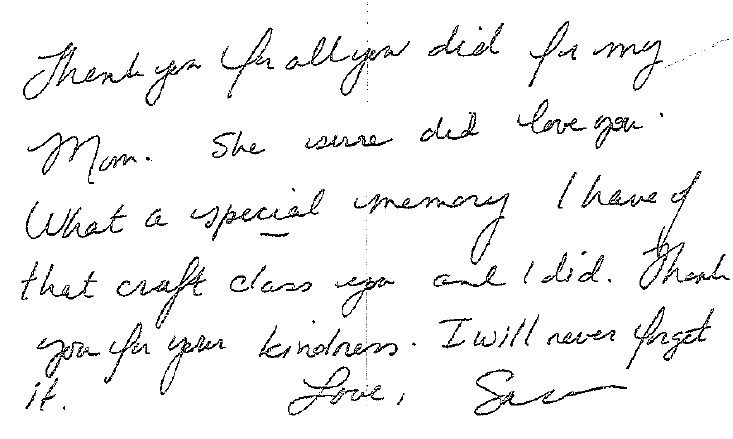 Thank you for all you did for my
Mom. She did love you.
What a special memory I have of
that craft class you and I did. Thank
you for your kindness. I will never forget
it. Love, Susan